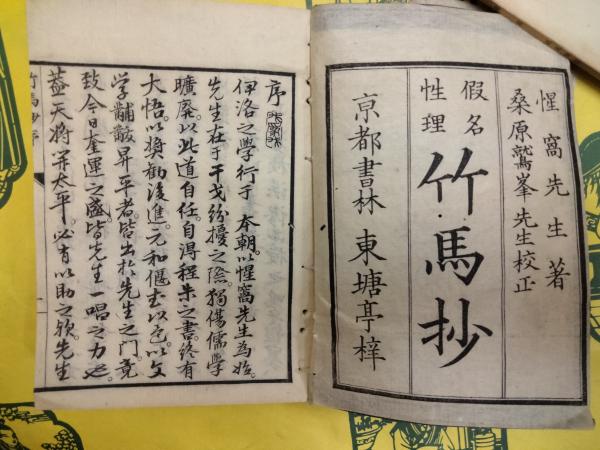 惺窩先生著
桑原鷲峯先生校正
假名
性理
竹馬抄
京都書林 東塘亭梓
序
伊洛之學行于 本朝以惺窩先生為始
先生在于干戈紛擾之際獨傷儒學
曠廢以此道自任自得程朱之書終有
大悟以奬勸後進元和偃武以
學黼黻昇平者皆出於先生之門竟
致今日奎運之盛皆先生一唱之力也
蓋天將開太平必有以助之歟先生
竹馬抄序